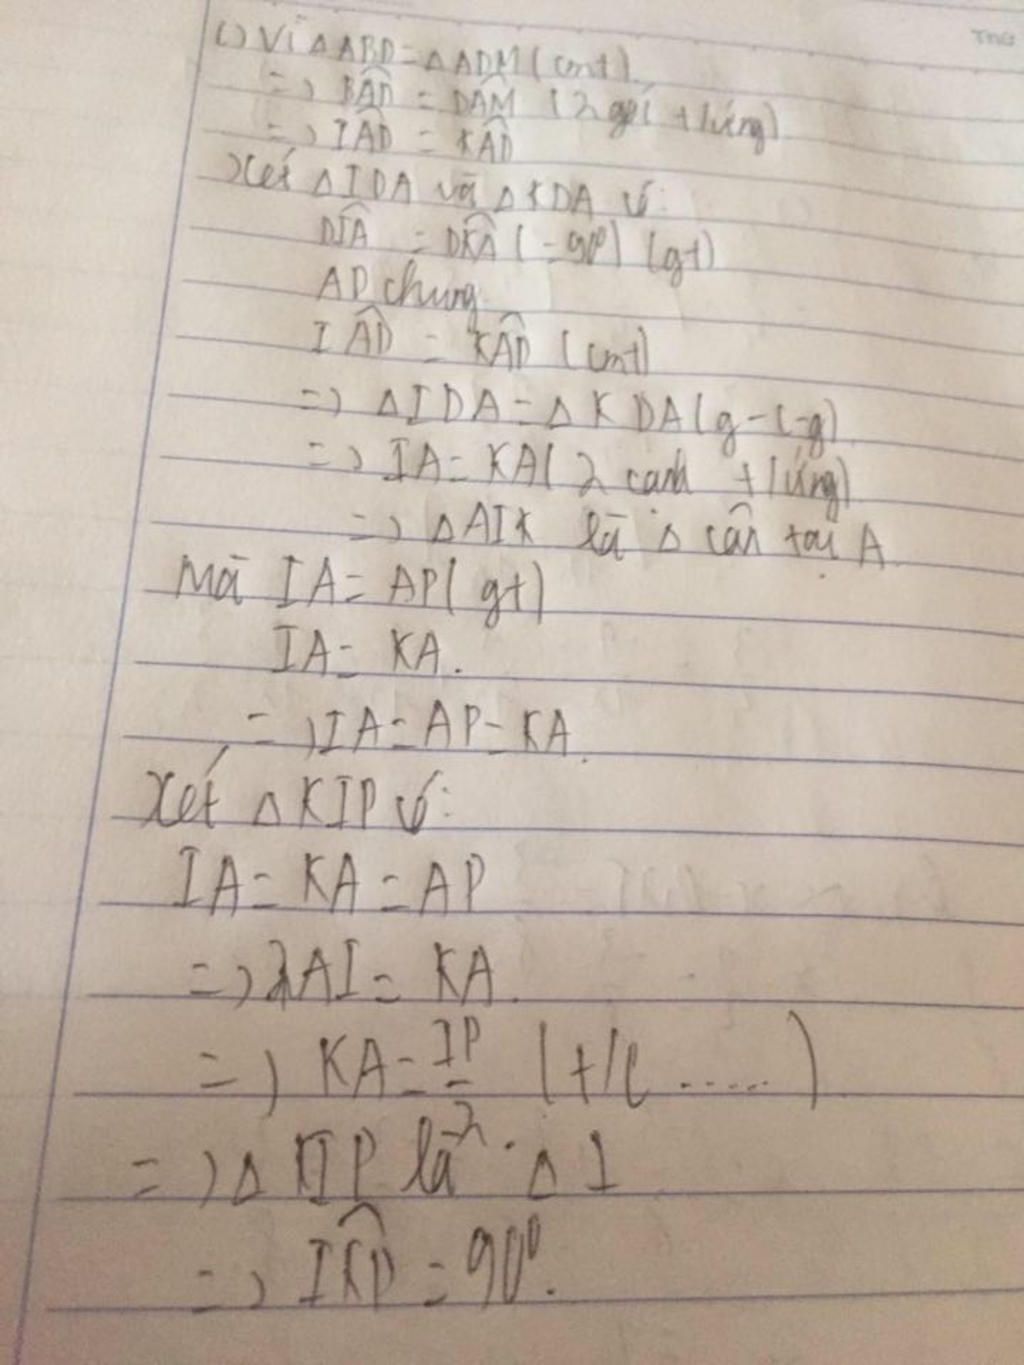 c) Vì △ABD = △ADM (cmt)
=> BAD̂ = DAM̂ (2 góc t/ứng)
=> IAD̂ = KAD̂
Xét △IDA và △KDA có:
DIÂ = DKÂ (= 90⁰) (gt)
AD chung
IAD̂ = KAD̂ (cmt)
=> △IDA = △KDA (g-c-g)
=> IA = KA (2 cạnh t/ứng)
=> △AIK là △ cân tại A
Mà IA = AP (gt)
IA = KA.
=> IA = AP = KA.
Xét △KIP có:
IA = KA = AP
=> AI = KA.
=> KA = IP/2 (t/c .....)
=> △KIP là △ ⊥
=> IKP̂ = 90⁰.